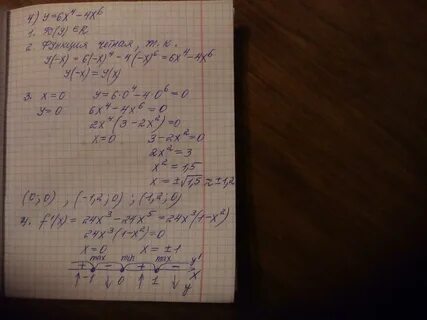 4) y=6x⁴-4x⁶
1. D(y) ∈ R
2. Функция четная, т.к.
y(-x)=6(-x)⁴-4(-x)⁶=6x⁴-4x⁶
y(-x)=y(x)
3. x=0 y=6·0⁴-4·0⁶=0
y=0 6x⁴-4x⁶=0
2x⁴(3-2x²)=0
x=0 3-2x²=0
2x²=3
x²=1,5
x=±√1,5≈±1,2
(0;0), (-1,2;0); (-1,2;0)
4. f'(x)=24x³-24x⁵=24x³(1-x²)
24x³(1-x²)=0
x=0 x=±1
+ max - min + max - y'
↑ -1 ↓ 0 ↑ 1 ↓ y x